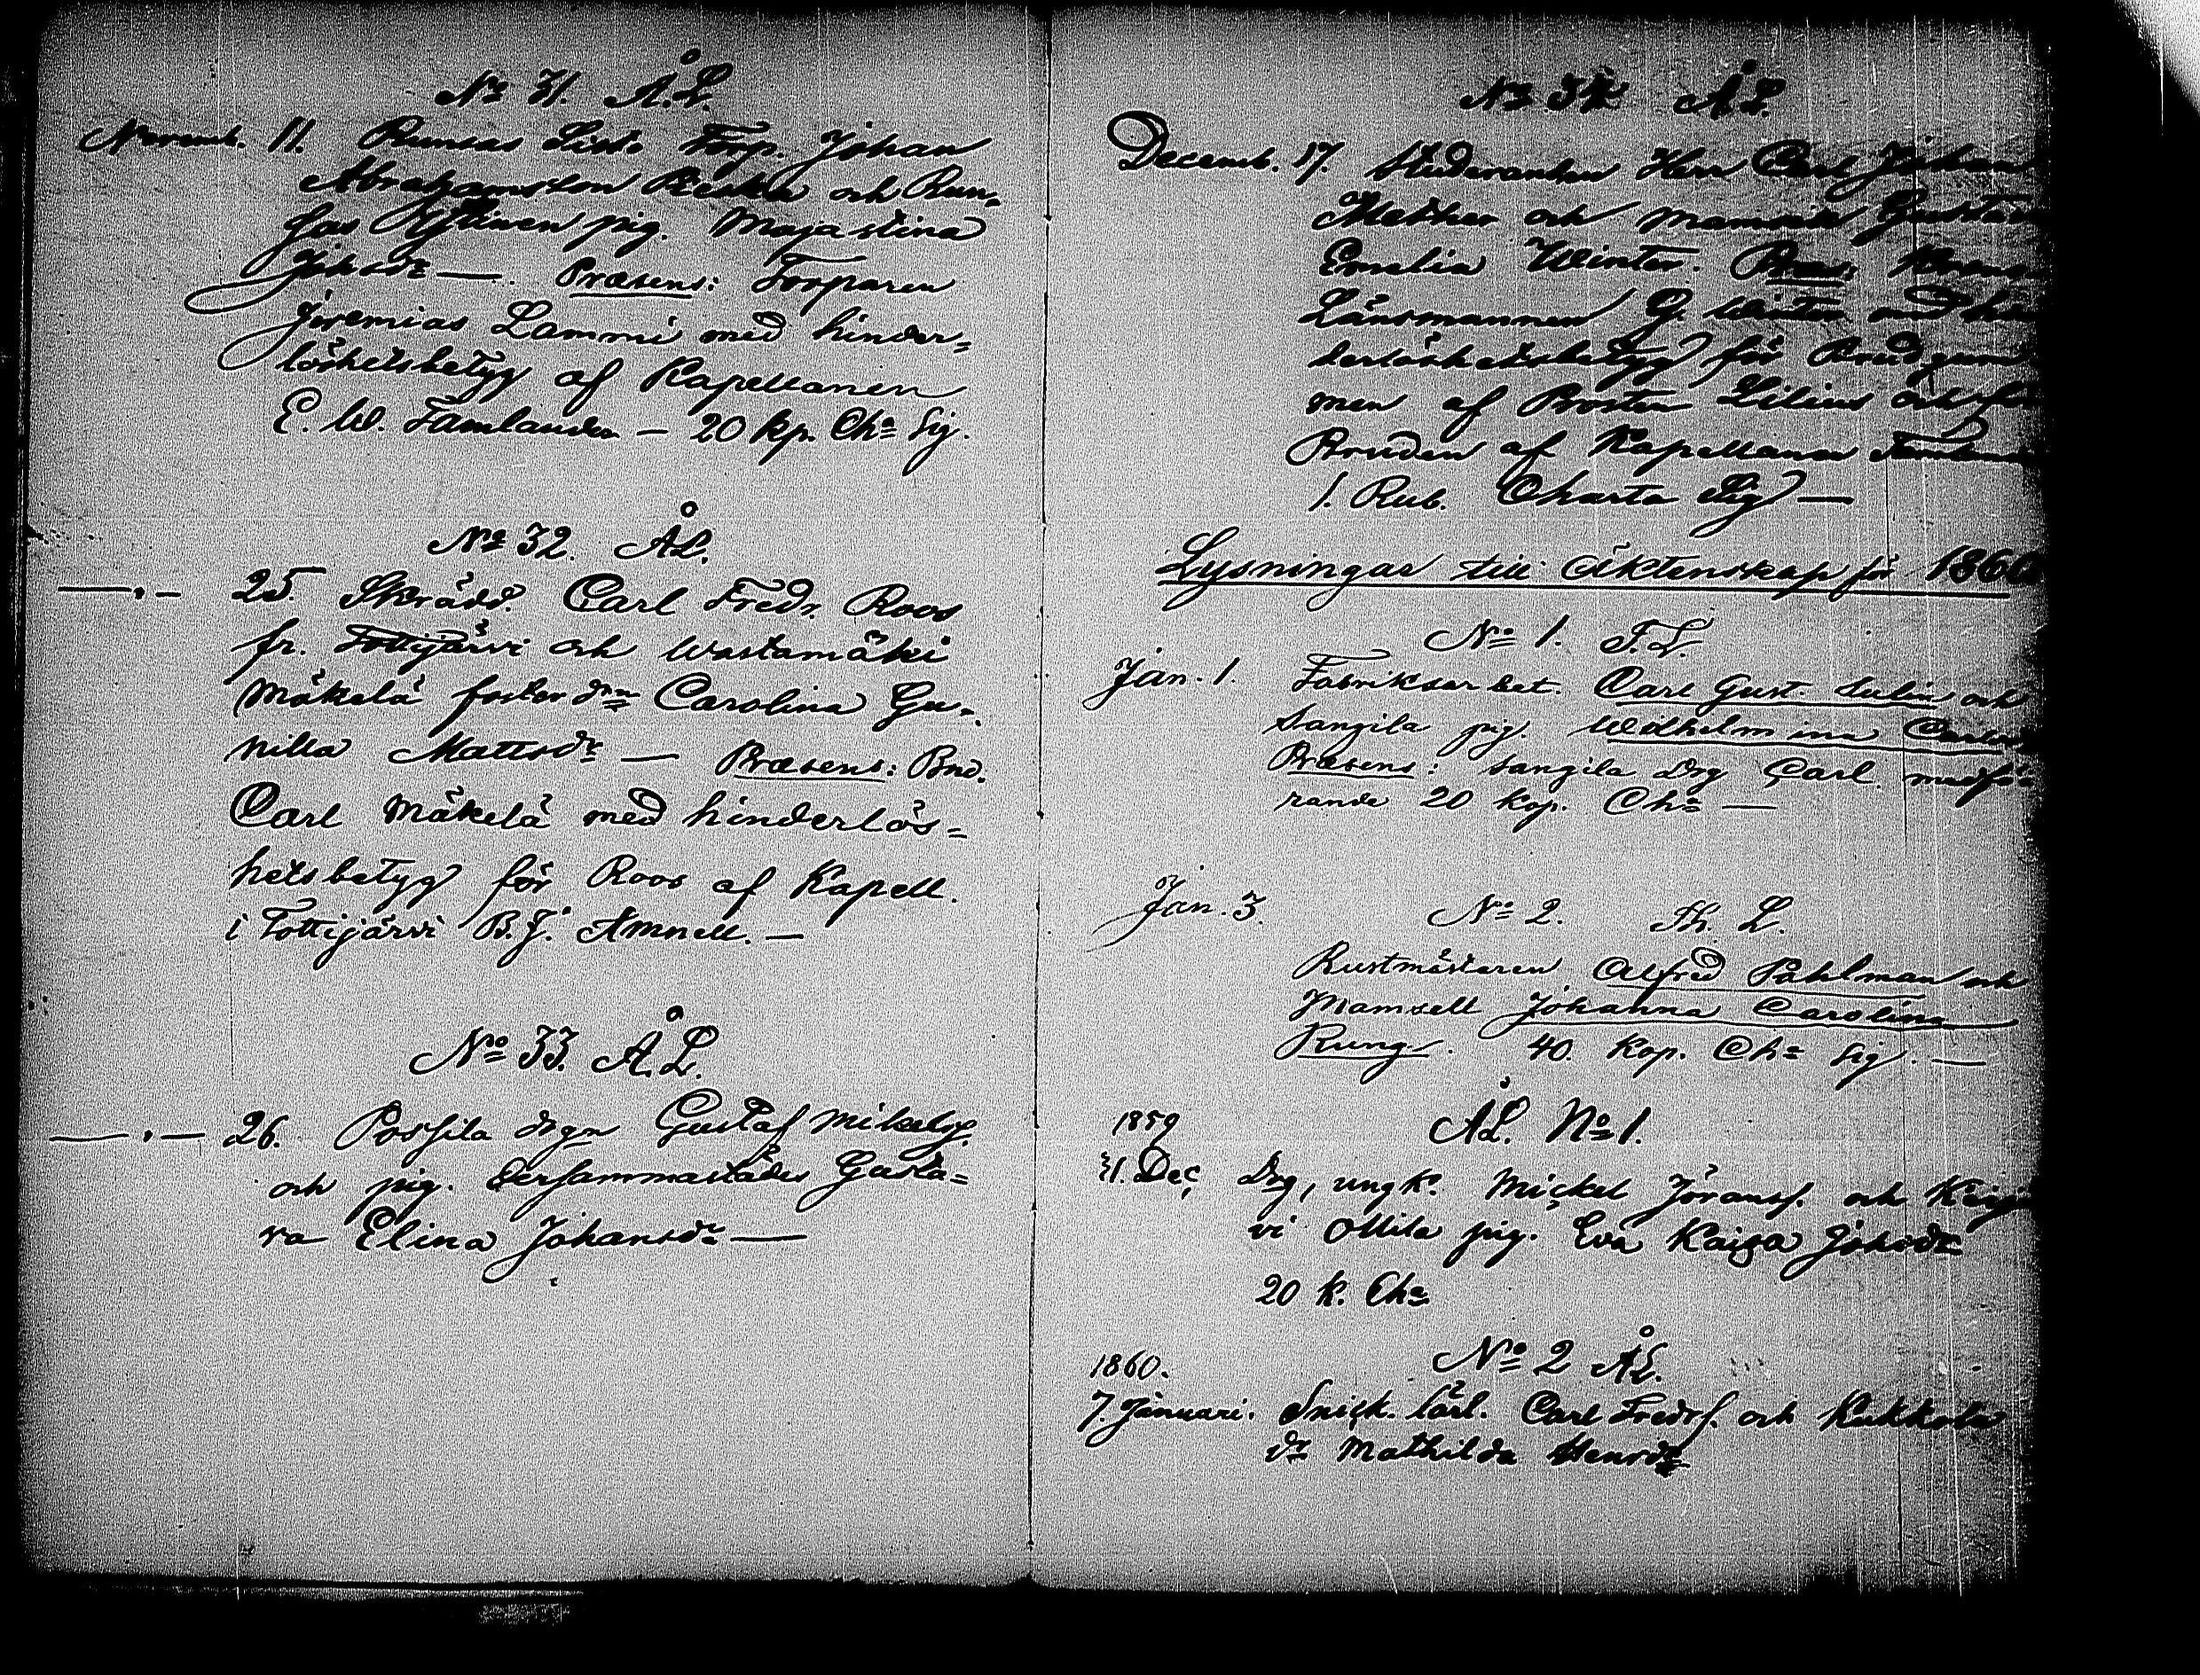 No 31. Å.L.
Novemb. 11. Torp. Johan
Abrahamsson och Run-
pig. Majastina
Johsdr — Præsens: Torparen
Jeremias Lammi med hinder-
löshetsbetyg af Kapellanen
E. W. Tamlander — 20 kp. Cha Sig.
No 32. ÅL.
—„— 25 Skrädd. Carl Fredr. Roos
fr. Tottijärvi och Wastamäki
Mäkelä foster dn Carolina Gu-
nilla Mattsdr — Præsens: Bnd.
Carl Mäkelä med hinderlös-
hets betyg för Roos af Kapell.
i Tottijärvi B.J. Amnell. —
No 33. Å.L.
—„— 26. Possila drgn Gustaf
och pig. dersammastädes Gusta-
va Elina Johansdr —
No 34 ÅL.
Decemb. 17. Studeranden Herr Carl Johan
och Mamsell
Emelia Winter. Præs:
Länsmannen G. Winter med
för Brudgum
men af Prosten Lilius och
Bruden af Kapellanen
1. Rub. Charta Sig —
Lysningar till äktenskap för 1860
No 1. F.L.
Jan. 1. Fabriksarbet. Carl Gust. och
Sangila pig. Wilhelmina
Præsens: Sangila Drg Carl medfö-
rande 20 Kop. Cha —
Jan. 3. No 2. L.
Rustmästaren Alfred Påhlman och
Mamsell Johanna Carolina
Rung. 40. Kop. Cha Sig. —
1859 ÅL. No 1.
31. Dec Drg, ungk. Mickel Jöransf. och
vi Ollila pig. Eva Kaisa Johsdr
20 K. Cha
1860. No 2 ÅL.
7. Januari. Snick. lärl. Carl Fredrf. och Kukkola
dr Mathilda Henrdr